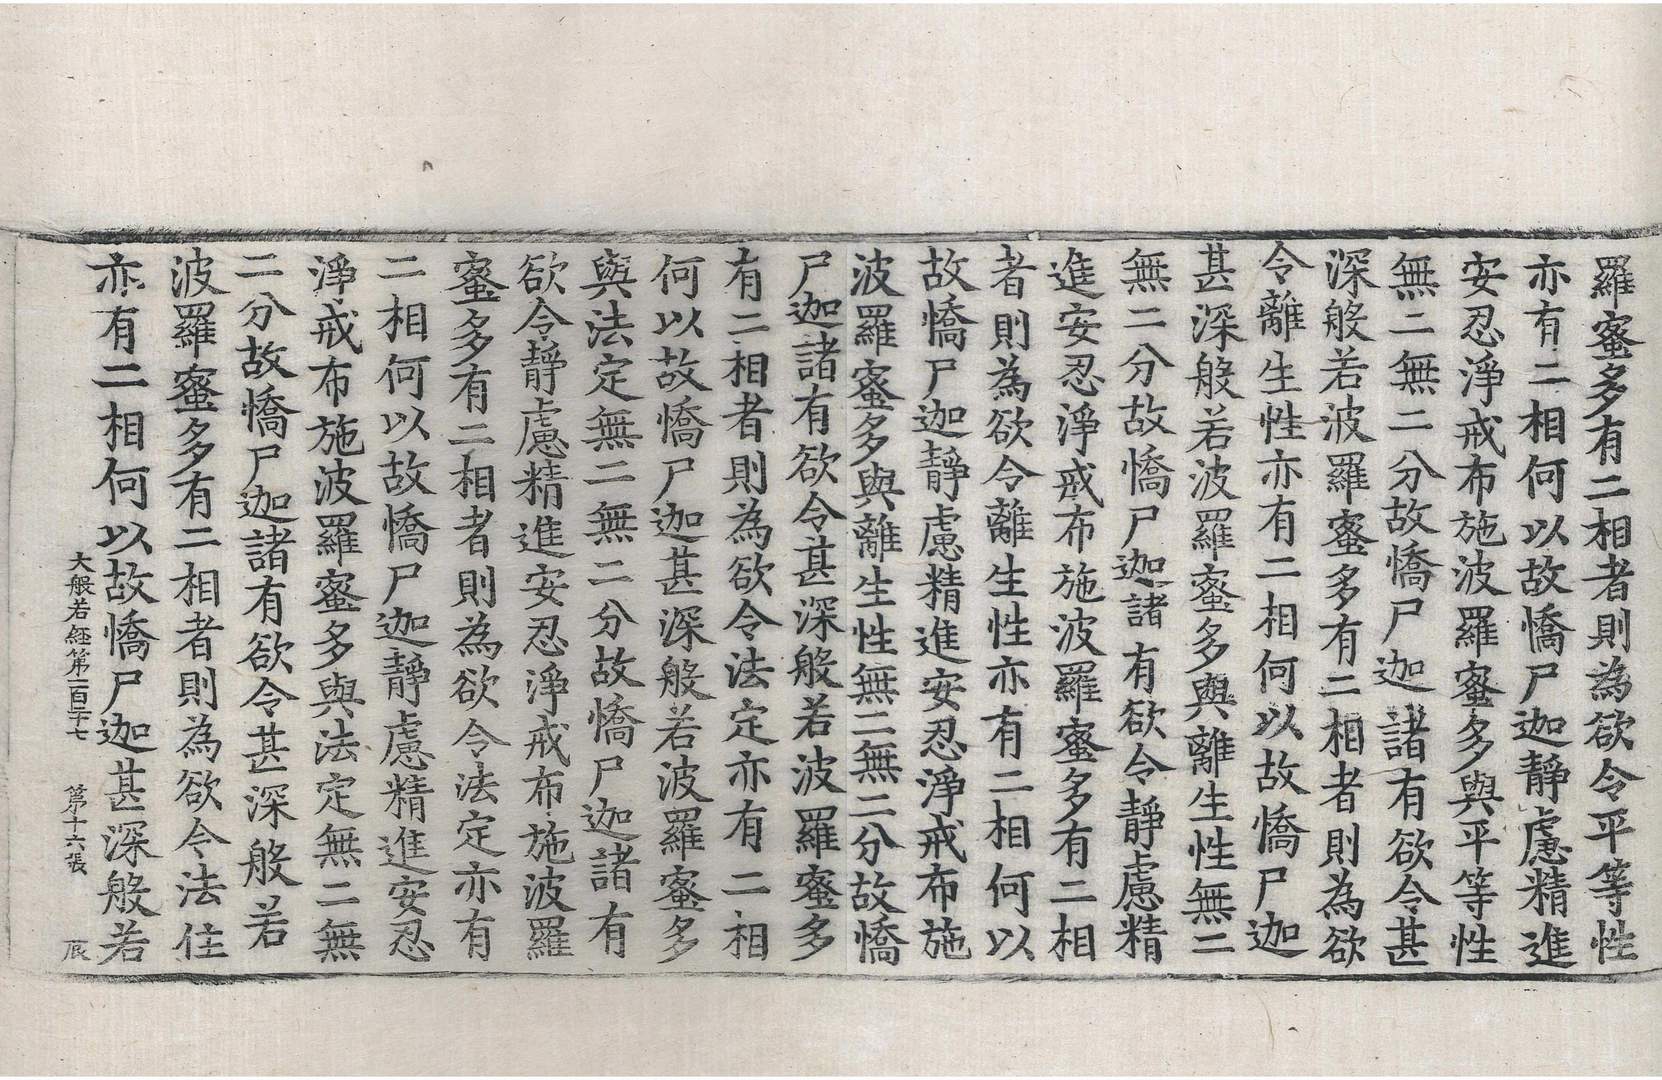 羅蜜多有二相者則為欲令平等性
亦有二相何以故憍尸迦靜慮精進
安忍淨戒布施波羅蜜多與平等性
無二無二分故憍尸迦諸有欲令甚
深般若波羅蜜多有二相者則為欲
令離生性亦有二相何以故憍尸迦
甚深般若波羅蜜多與離生性無二
無二分故憍尸迦諸有欲令靜慮精
進安忍淨戒布施波羅蜜多有二相
者則為欲令離生性亦有二相何以
故憍尸迦靜慮精進安忍淨戒布施
波羅蜜多與離生性無二無二分故憍
尸迦諸有欲令甚深般若波羅蜜多
有二相者則為欲令法定亦有二相
何以故憍尸迦甚深般若波羅蜜多
與法定無二無二分故憍尸迦諸有
欲令靜慮精進安忍淨戒布施波羅
蜜多有二相者則為欲令法定亦有
二相何以故憍尸迦靜慮精進安忍
淨戒布施波羅蜜多與法定無二無
二分故憍尸迦諸有欲令甚深般若
波羅蜜多有二相者則為欲令法住
亦有二相何以故憍尸迦甚深般若
大般若經第一百二十七 第十六張 辰